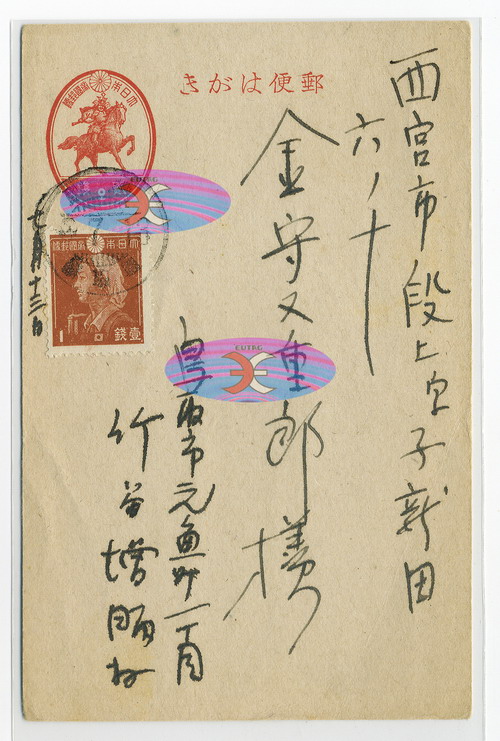 郵便はがき
大日本帝國郵便
西宮市段上字子新田
六ノ十
金守又重郎様
鳥取市元魚町一丁目
竹谷増
七月十三日
大日本帝國郵便
1
壹錢
CUTEG
CUTEG